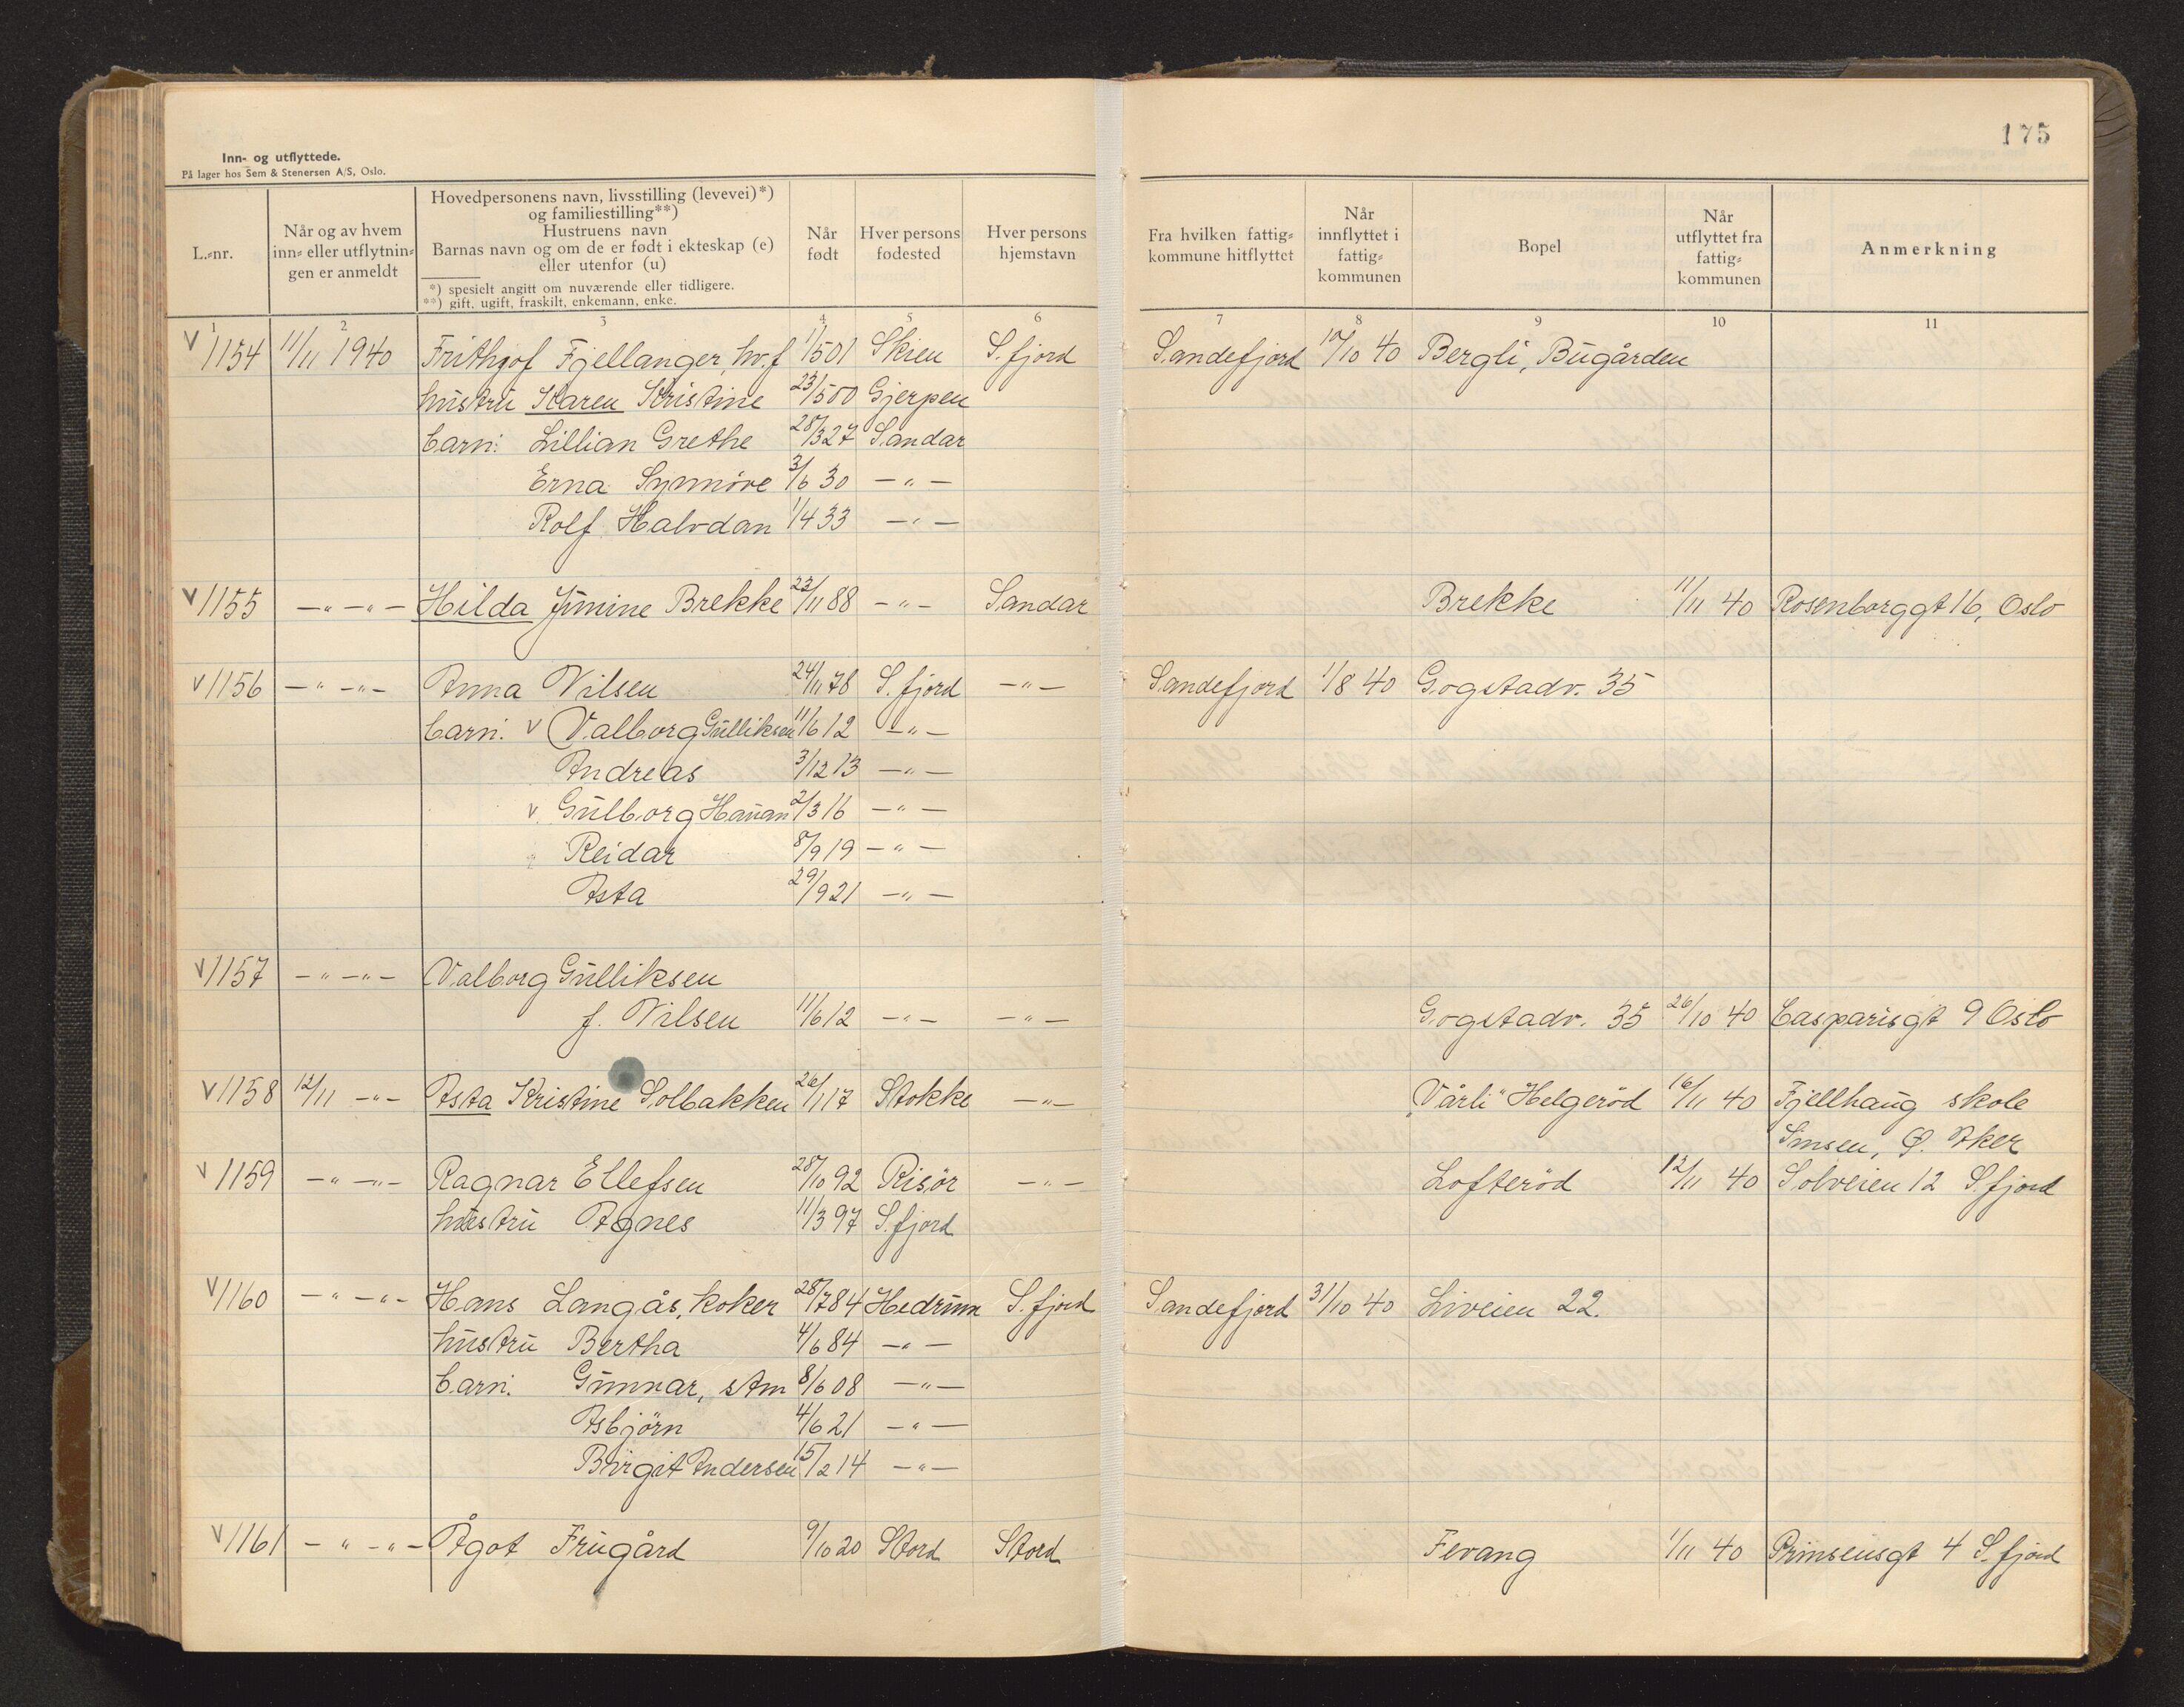 175
Inn- og utflyttede.
På lager hos Sem & Stenersen A/S, Oslo.
L.-nr.
Når og av hvem inn- eller utflytnin- gen er anmeldt
Hovedpersonens navn, livsstilling (levevei)*)
og familiestilling**)
Hustruens navn
Barnas navn og om de er født i ekteskap (e)
eller utenfor (u)
*) spesielt angitt om nuværende eller tidligere.
**) gift, ugift, fraskilt, enkemann, enke.
Når født
Hver persons fødested
Hver persons hjemstavn
Fra hvilken fattig- kommune hitflyttet
Når innflyttet i fattig- kommunen
Bopel
Når utflyttet fra fattig- kommunen
Anmerkning
1 2 3 4 5 6 7 8 9 10 11
V 1154 11/11 1940 Frithjof Fjellanger, hv.f 1/5 01 Skien S.fjord Sandefjord 10/10 40 Bergli, Bugården
hustru Karen Kristine 23/5 00 Gjerpen
barn: Lillian Grethe 28/3 27 Sandar
Erna Synnöve 3/6 30 -"-
Rolf Halvdan 1/4 33 -"-
V 1155 -"-"- Hilda Jimine Brekke 23/11 88 -"- Sandar Brekke 11/11 40 Rosenborggt 16, Oslo
V 1156 -"-"- Anna Nilsen 24/11 78 S.fjord -"- Sandefjord 1/8 40 Gogstadv. 35
barn: v Valborg Gulliksen 11/6 12 -"-
Andreas 3/12 13 -"-
v. Gulborg Hauan 2/3 16 -"-
Reidar 8/9 19 -"-
Asta 29/9 21 -"-
V 1157 -"-"- Valborg Gulliksen
f. Nilsen 11/6 12 -"- -"- Gogstadv. 35 26/10 40 Casparisgt 9 Oslo
V 1158 12/11 -"- Asta Kristine Solbakken 26/1 17 Stokke -"- "Vårli" Helgeröd 16/11 40 Fjellhaug skole
Sinsen, Ø. Aker
V 1159 -"-"- Ragnar Ellefsen 28/10 92 Risör -"- Lofteröd 12/11 40 Solveien 12 S.fjord
hustru Agnes 11/3 97 S.fjord
V 1160 -"-"- Hans Langås, koker 28/7 84 Hedrum S.fjord Sandefjord 31/10 40 Liveien 22.
hustru Bertha 4/6 84 -"-
barn: Gunnar, stm 8/6 08 -"-
Asbjörn 4/6 21 -"-
Birgit Andersen 15/2 14 -"-
V 1161 -"-"- Ågot Frugård 9/10 20 Stord Stord Fevang 1/11 40 Prinsensgt 4 S.fjord